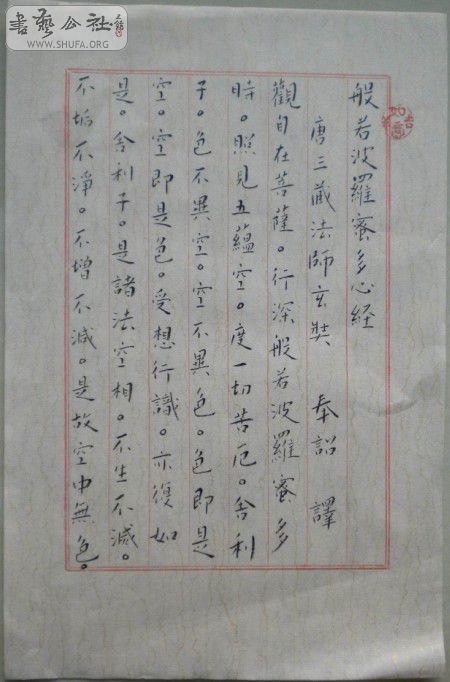 書藝公社
WWW.SHUFA.ORG
般若波羅蜜多心経
唐三藏法師玄奘 奉詔 譯
觀自在菩薩。行深般若波羅蜜多
時。照見五蘊空。度一切苦厄。舍利
子。色不異空。空不異色。色即是
空。空即是色。受想行識。亦復如
是。舍利子。是諸法空相。不生不滅。
不垢不淨。不增不減。是故空中無色。
如意